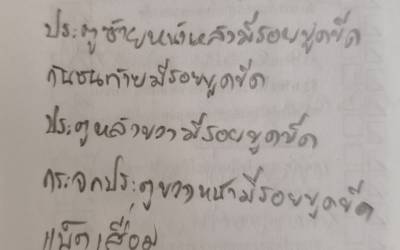 ประตูซ้ายหน้าหลังมีรอยขูดขีด
กันชนท้ายมีรอยขูดขีด
ประตูหลังขวามีรอยขูดขีด
กระจกประตูขวาหน้ามีรอยขูดขีด
แบ็ตเสื่อม